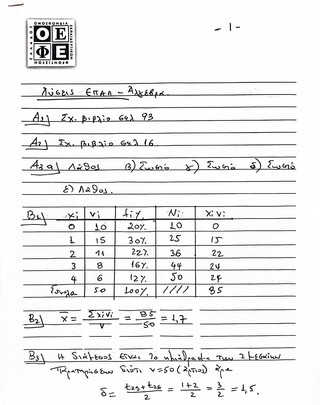 - 1 -
ΟΕΦΕ
Λύσεις ΕΠΑΛ - Άλγεβρα.
A1) Σχ. βιβλίο σελ 93
A2) Σχ. βιβλίο σελ 16.
A3 α) Λάθος β) Σωστό γ) Σωστό δ) Σωστό
ε) Λάθος.
B1) xi νi fi% Ni xiνi
0 10 20% 10 0
1 15 30% 25 15
2 11 22% 36 22
3 8 16% 44 24
4 6 12% 50 24
Σύνολα 50 100% //// 85
B2) x̄ = Σxiνi / ν = 85 / 50 = 1,7
B3) Η διάμεσος είναι το ημιάθροισμα των 2 μεσαίων
παρατηρήσεων διότι ν=50 (άρτιος) άρα
δ = t25+t26 / 2 = 1+2 / 2 = 3 / 2 = 1,5.